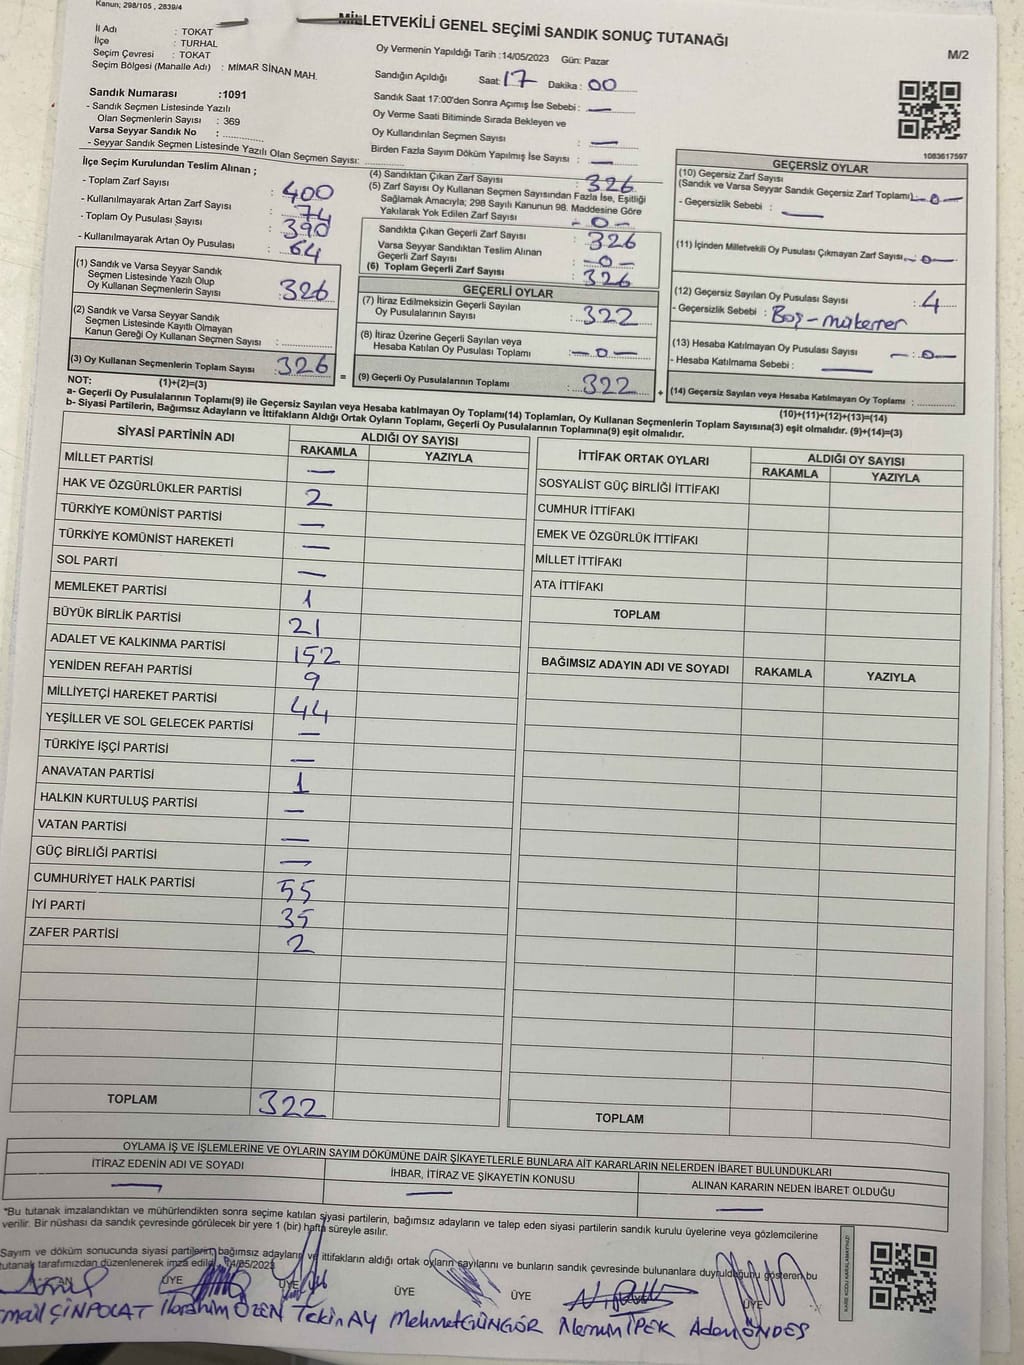 Kanun; 298/105 , 2839/4
MİLLETVEKİLİ GENEL SEÇİMİ SANDIK SONUÇ TUTANAĞI
M/2
İl Adı : TOKAT
İlçe : TURHAL
Seçim Çevresi : TOKAT
Seçim Bölgesi (Mahalle Adı) : MİMAR SİNAN MAH.
Sandık Numarası :1091
- Sandık Seçmen Listesinde Yazılı
Olan Seçmenlerin Sayısı : 369
Varsa Seyyar Sandık No :
- Seyyar Sandık Seçmen Listesinde Yazılı Olan Seçmen Sayısı:
Oy Vermenin Yapıldığı Tarih :14/05/2023 Gün: Pazar
Sandığın Açıldığı Saat: 17 Dakika : 00
Sandık Saat 17:00'den Sonra Açımış İse Sebebi : —
Oy Verme Saati Bitiminde Sırada Bekleyen ve
Oy Kullandırılan Seçmen Sayısı : —
Birden Fazla Sayım Döküm Yapılmış İse Sayısı : —
1083617597
İlçe Seçim Kurulundan Teslim Alınan ;
- Toplam Zarf Sayısı : 400
- Kullanılmayarak Artan Zarf Sayısı : 74
- Toplam Oy Pusulası Sayısı : 390
- Kullanılmayarak Artan Oy Pusulası : 64
(1) Sandık ve Varsa Seyyar Sandık
Seçmen Listesinde Yazılı Olup
Oy Kullanan Seçmenlerin Sayısı : 326
(2) Sandık ve Varsa Seyyar Sandık
Seçmen Listesinde Kayıtlı Olmayan
Kanun Gereği Oy Kullanan Seçmen Sayısı :
(3) Oy Kullanan Seçmenlerin Toplam Sayısı : 326
(1)+(2)=(3)
(4) Sandıktan Çıkan Zarf Sayısı : 326
(5) Zarf Sayısı Oy Kullanan Seçmen Sayısından Fazla İse, Eşitliği
Sağlamak Amacıyla; 298 Sayılı Kanunun 98. Maddesine Göre
Yakılarak Yok Edilen Zarf Sayısı : -0-
Sandıkta Çıkan Geçerli Zarf Sayısı : 326
Varsa Seyyar Sandıktan Teslim Alınan
Geçerli Zarf Sayısı : -0-
(6) Toplam Geçerli Zarf Sayısı : 326
GEÇERLİ OYLAR
(7) İtiraz Edilmeksizin Geçerli Sayılan
Oy Pusulalarının Sayısı : 322
(8) İtiraz Üzerine Geçerli Sayılan veya
Hesaba Katılan Oy Pusulası Toplamı : -0-
= (9) Geçerli Oy Pusulalarının Toplamı : 322
GEÇERSİZ OYLAR
(10) Geçersiz Zarf Sayısı
(Sandık ve Varsa Seyyar Sandık Geçersiz Zarf Toplamı) -0-
- Geçersizlik Sebebi : —
(11) İçinden Milletvekili Oy Pusulası Çıkmayan Zarf Sayısı -0-
(12) Geçersiz Sayılan Oy Pusulası Sayısı : 4
- Geçersizlik Sebebi : Boş - mükerrer
(13) Hesaba Katılmayan Oy Pusulası Sayısı -0-
- Hesaba Katılmama Sebebi : —
+ (14) Geçersiz Sayılan veya Hesaba Katılmayan Oy Toplamı :
(10)+(11)+(12)+(13)=(14)
NOT:
a- Geçerli Oy Pusulalarının Toplamı(9) ile Geçersiz Sayılan veya Hesaba katılmayan Oy Toplamı(14) Toplamları, Oy Kullanan Seçmenlerin Toplam Sayısına(3) eşit olmalıdır. (9)+(14)=(3)
b- Siyasi Partilerin, Bağımsız Adayların ve İttifakların Aldığı Ortak Oyların Toplamı, Geçerli Oy Pusulalarının Toplamına(9) eşit olmalıdır.
SİYASİ PARTİNİN ADI ALDIĞI OY SAYISI
RAKAMLA YAZIYLA
MİLLET PARTİSİ —
HAK VE ÖZGÜRLÜKLER PARTİSİ 2
TÜRKİYE KOMÜNİST PARTİSİ —
TÜRKİYE KOMÜNİST HAREKETİ —
SOL PARTİ —
MEMLEKET PARTİSİ 1
BÜYÜK BİRLİK PARTİSİ 21
ADALET VE KALKINMA PARTİSİ 152
YENİDEN REFAH PARTİSİ 9
MİLLİYETÇİ HAREKET PARTİSİ 44
YEŞİLLER VE SOL GELECEK PARTİSİ —
TÜRKİYE İŞÇİ PARTİSİ —
ANAVATAN PARTİSİ 1
HALKIN KURTULUŞ PARTİSİ —
VATAN PARTİSİ —
GÜÇ BİRLİĞİ PARTİSİ —
CUMHURİYET HALK PARTİSİ 55
İYİ PARTİ 35
ZAFER PARTİSİ 2
TOPLAM 322
İTTİFAK ORTAK OYLARI ALDIĞI OY SAYISI
RAKAMLA YAZIYLA
SOSYALİST GÜÇ BİRLİĞİ İTTİFAKI
CUMHUR İTTİFAKI
EMEK VE ÖZGÜRLÜK İTTİFAKI
MİLLET İTTİFAKI
ATA İTTİFAKI
TOPLAM
BAĞIMSIZ ADAYIN ADI VE SOYADI RAKAMLA YAZIYLA
TOPLAM
OYLAMA İŞ VE İŞLEMLERİNE VE OYLARIN SAYIM DÖKÜMÜNE DAİR ŞİKAYETLERLE BUNLARA AİT KARARLARIN NELERDEN İBARET BULUNDUKLARI
İTİRAZ EDENİN ADI VE SOYADI İHBAR, İTİRAZ VE ŞİKAYETİN KONUSU ALINAN KARARIN NEDEN İBARET OLDUĞU
— — —
*Bu tutanak imzalandıktan ve mühürlendikten sonra seçime katılan siyasi partilerin, bağımsız adayların ve talep eden siyasi partilerin sandık kurulu üyelerine veya gözlemcilerine
verilir. Bir nüshası da sandık çevresinde görülecek bir yere 1 (bir) hafta süreyle asılır.
Sayım ve döküm sonucunda siyasi partilerin, bağımsız adayların ve ittifakların aldığı ortak oyların sayılarını ve bunların sandık çevresinde bulunanlara duyrulduğunu gösteren bu
tutanak tarafımızdan düzenlenerek imza edildi. 14/05/2023
ÜYE ÜYE ÜYE ÜYE ÜYE
ÇİNPOLAT İbrahim ÖZEN Tekin AY Mehmet GÜNGÖR İPEK Adem ÖNDEŞ